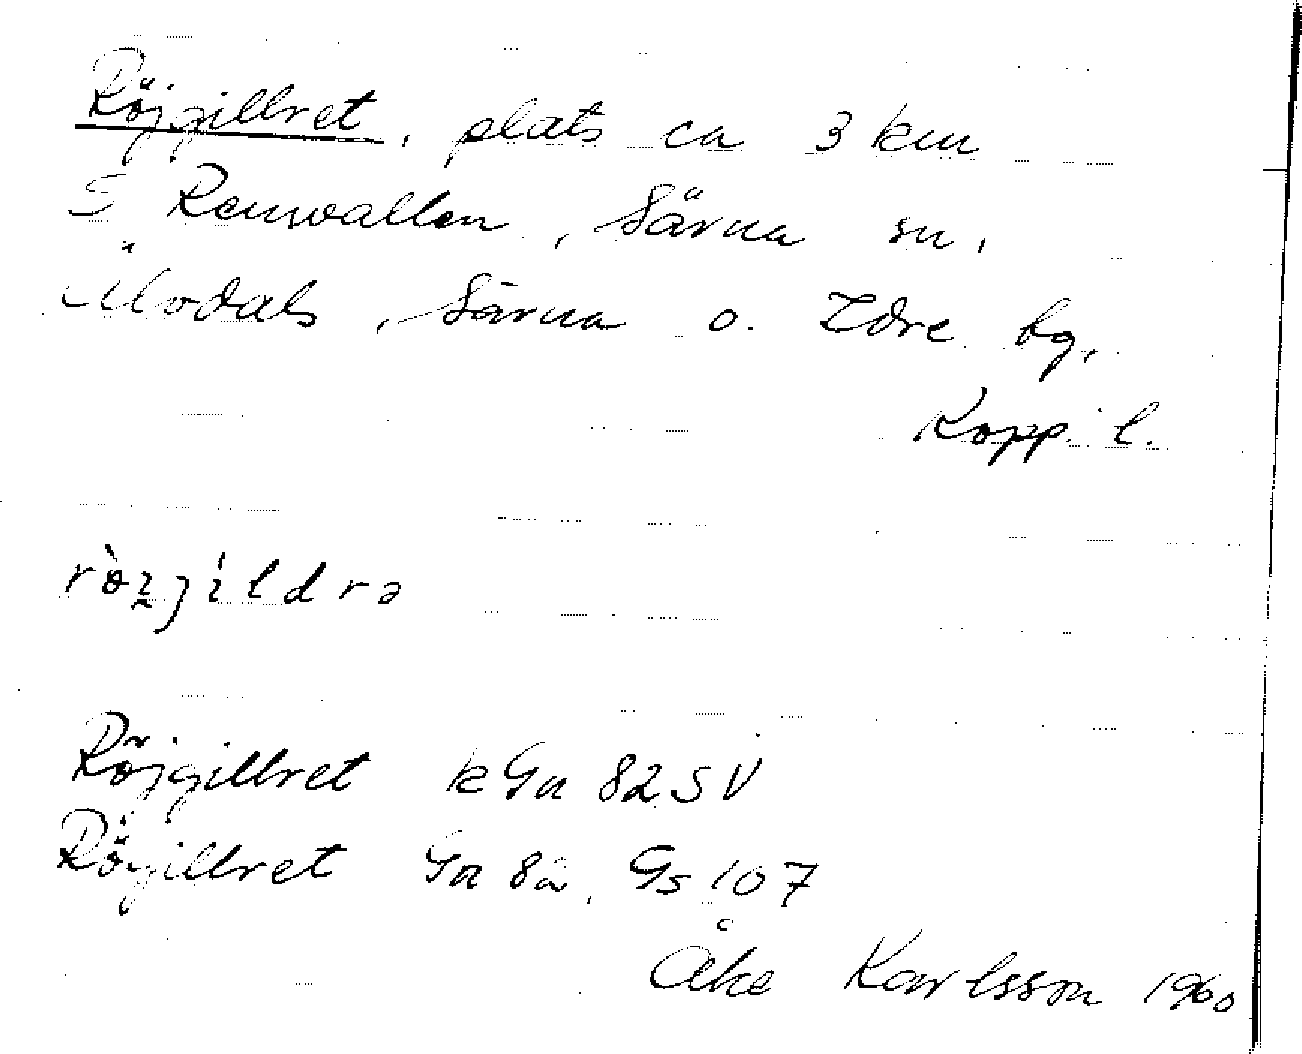 Röjgillret, plats ca 3 km
S Renvallen, Särna sn,
Älvdals, Särna o. Idre tg,
Kopp. l.
Röjgillret k Ga 82 SV
Röjillret Ga 82, Gs 107
Åke Karlsson 1960